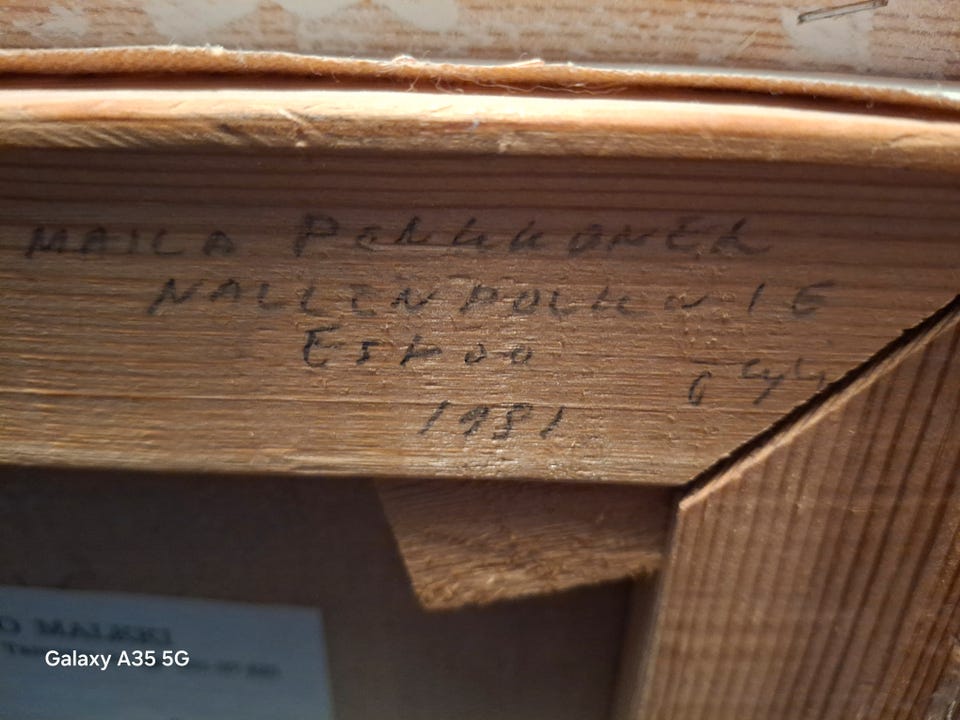 MAILA PENKKONEN
NALLENPOLKU 1 E
ESPOO
1981
MALKKI
Galaxy A35 5G